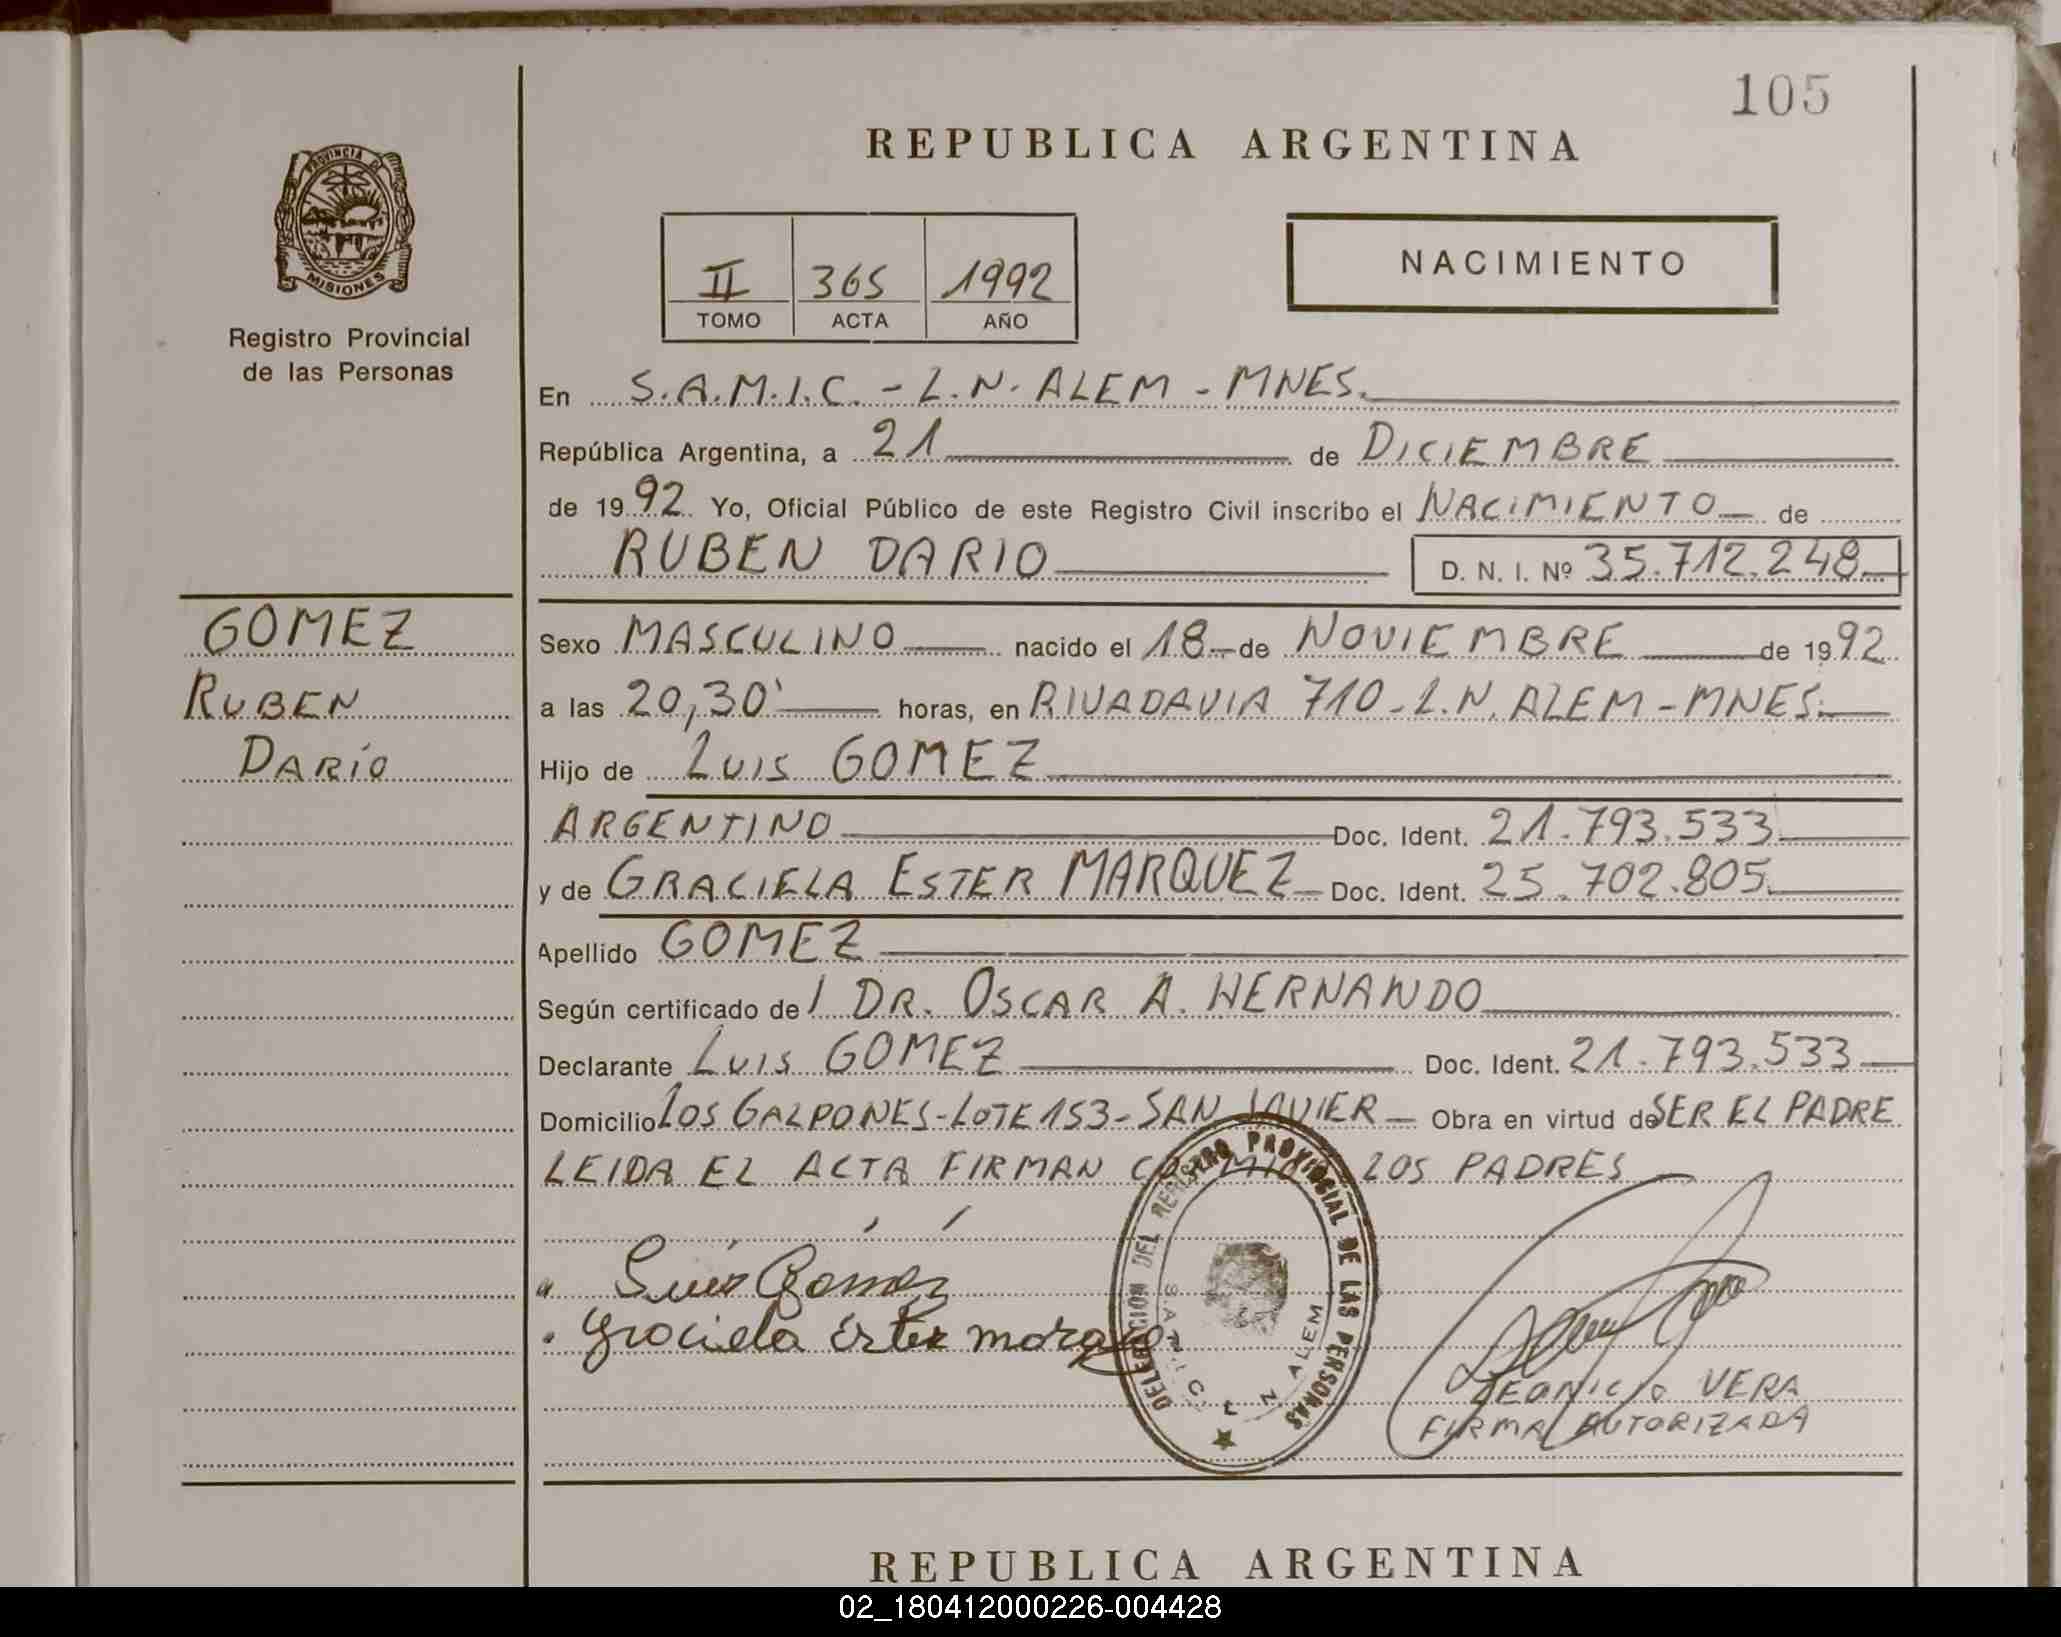 105
REPUBLICA ARGENTINA
PROVINCIA D
MISIONES
Registro Provincial
de las Personas
II 365 1992
TOMO ACTA AÑO
NACIMIENTO
En S.A.M.I.C. - L.N. ALEM - MNES.
República Argentina, a 21 de DICIEMBRE
de 1992 Yo, Oficial Público de este Registro Civil inscribo el NACIMIENTO de
RUBEN DARIO D. N. I. Nº 35.712.248
GOMEZ
RUBEN
DARÍO
Sexo MASCULINO nacido el 18 de NOVIEMBRE de 1992
a las 20,30' horas, en RIVADAVIA 710 - L.N. ALEM - MNES.
Hijo de LUIS GOMEZ
ARGENTINO Doc. Ident. 21.793.533
y de GRACIELA ESTER MARQUEZ Doc. Ident. 25.702.805
Apellido GOMEZ
Según certificado de DR. OSCAR A. HERNANDO
Declarante LUIS GOMEZ Doc. Ident. 21.793.533
Domicilio LOS GALPONES - LOTE 153 - SAN JAVIER Obra en virtud de SER EL PADRE
LEIDA EL ACTA FIRMAN LOS PADRES
Luis Gomez
Graciela Ester
DELEGACION DEL REGISTRO PROVINCIAL DE LAS PERSONAS
L N ALEM
VERA
FIRMA AUTORIZADA
REPUBLICA ARGENTINA
02_180412000226-004428